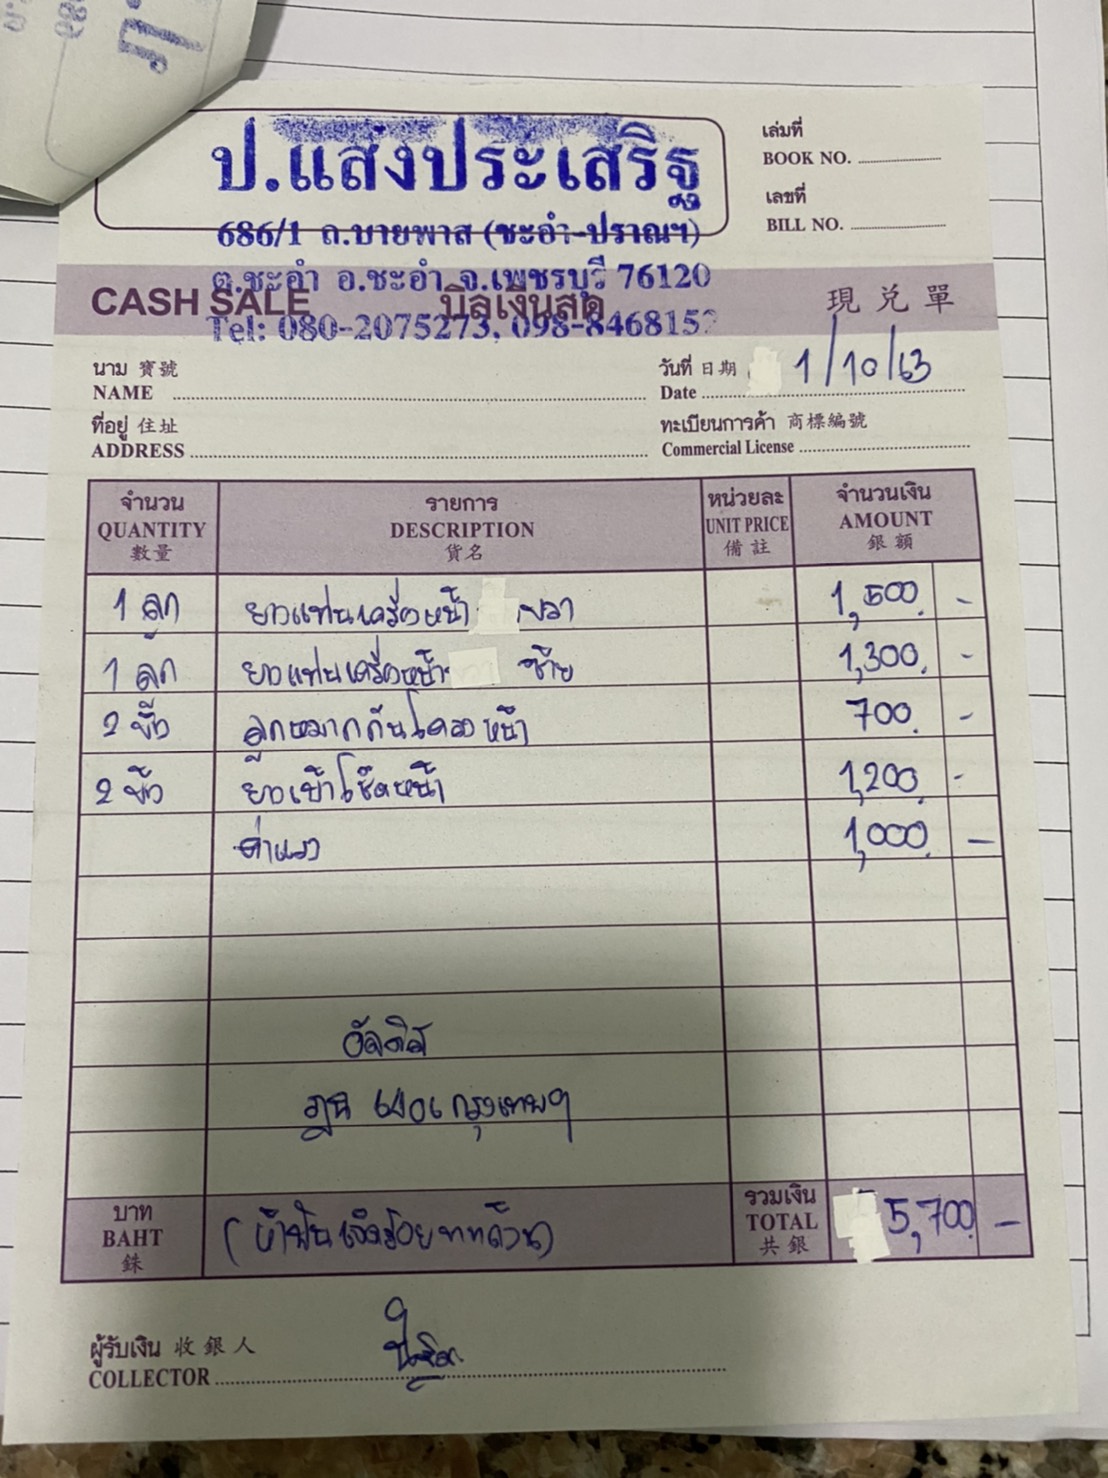 ป.แสงประเสริฐ
686/1 ถ.บายพาส (ชะอำ-ปราณฯ)
ต.ชะอำ อ.ชะอำ จ.เพชรบุรี 76120
Tel: 080-2075273, 098-8468152
เล่มที่
BOOK NO.
เลขที่
BILL NO.
CASH SALE บิลเงินสด 現兌單
นาม 寶號
NAME
วันที่ 日期 1/10/63
Date
ที่อยู่ 住址
ADDRESS
ทะเบียนการค้า 商標編號
Commercial License
จำนวน รายการ หน่วยละ จำนวนเงิน
QUANTITY DESCRIPTION UNIT PRICE AMOUNT
數量 貨名 備註 銀額
1 ลูก ยางแท่นเครื่องหน้า ขวา 1,500.-
1 ลูก ยางแท่นเครื่องหน้า ซ้าย 1,300.-
2 ชิ้น ลูกหมากกันโคลงหน้า 700.-
2 ชิ้น ยางเบ้าโช๊คหน้า 1,200.-
ค่าแรง 1,000.-
อัลติส
กรุงเทพฯ
บาท
BAHT
銖
(ห้าพันเจ็ดร้อยบาทถ้วน)
รวมเงิน
TOTAL 5,700.-
共銀
ผู้รับเงิน 收銀人
COLLECTOR